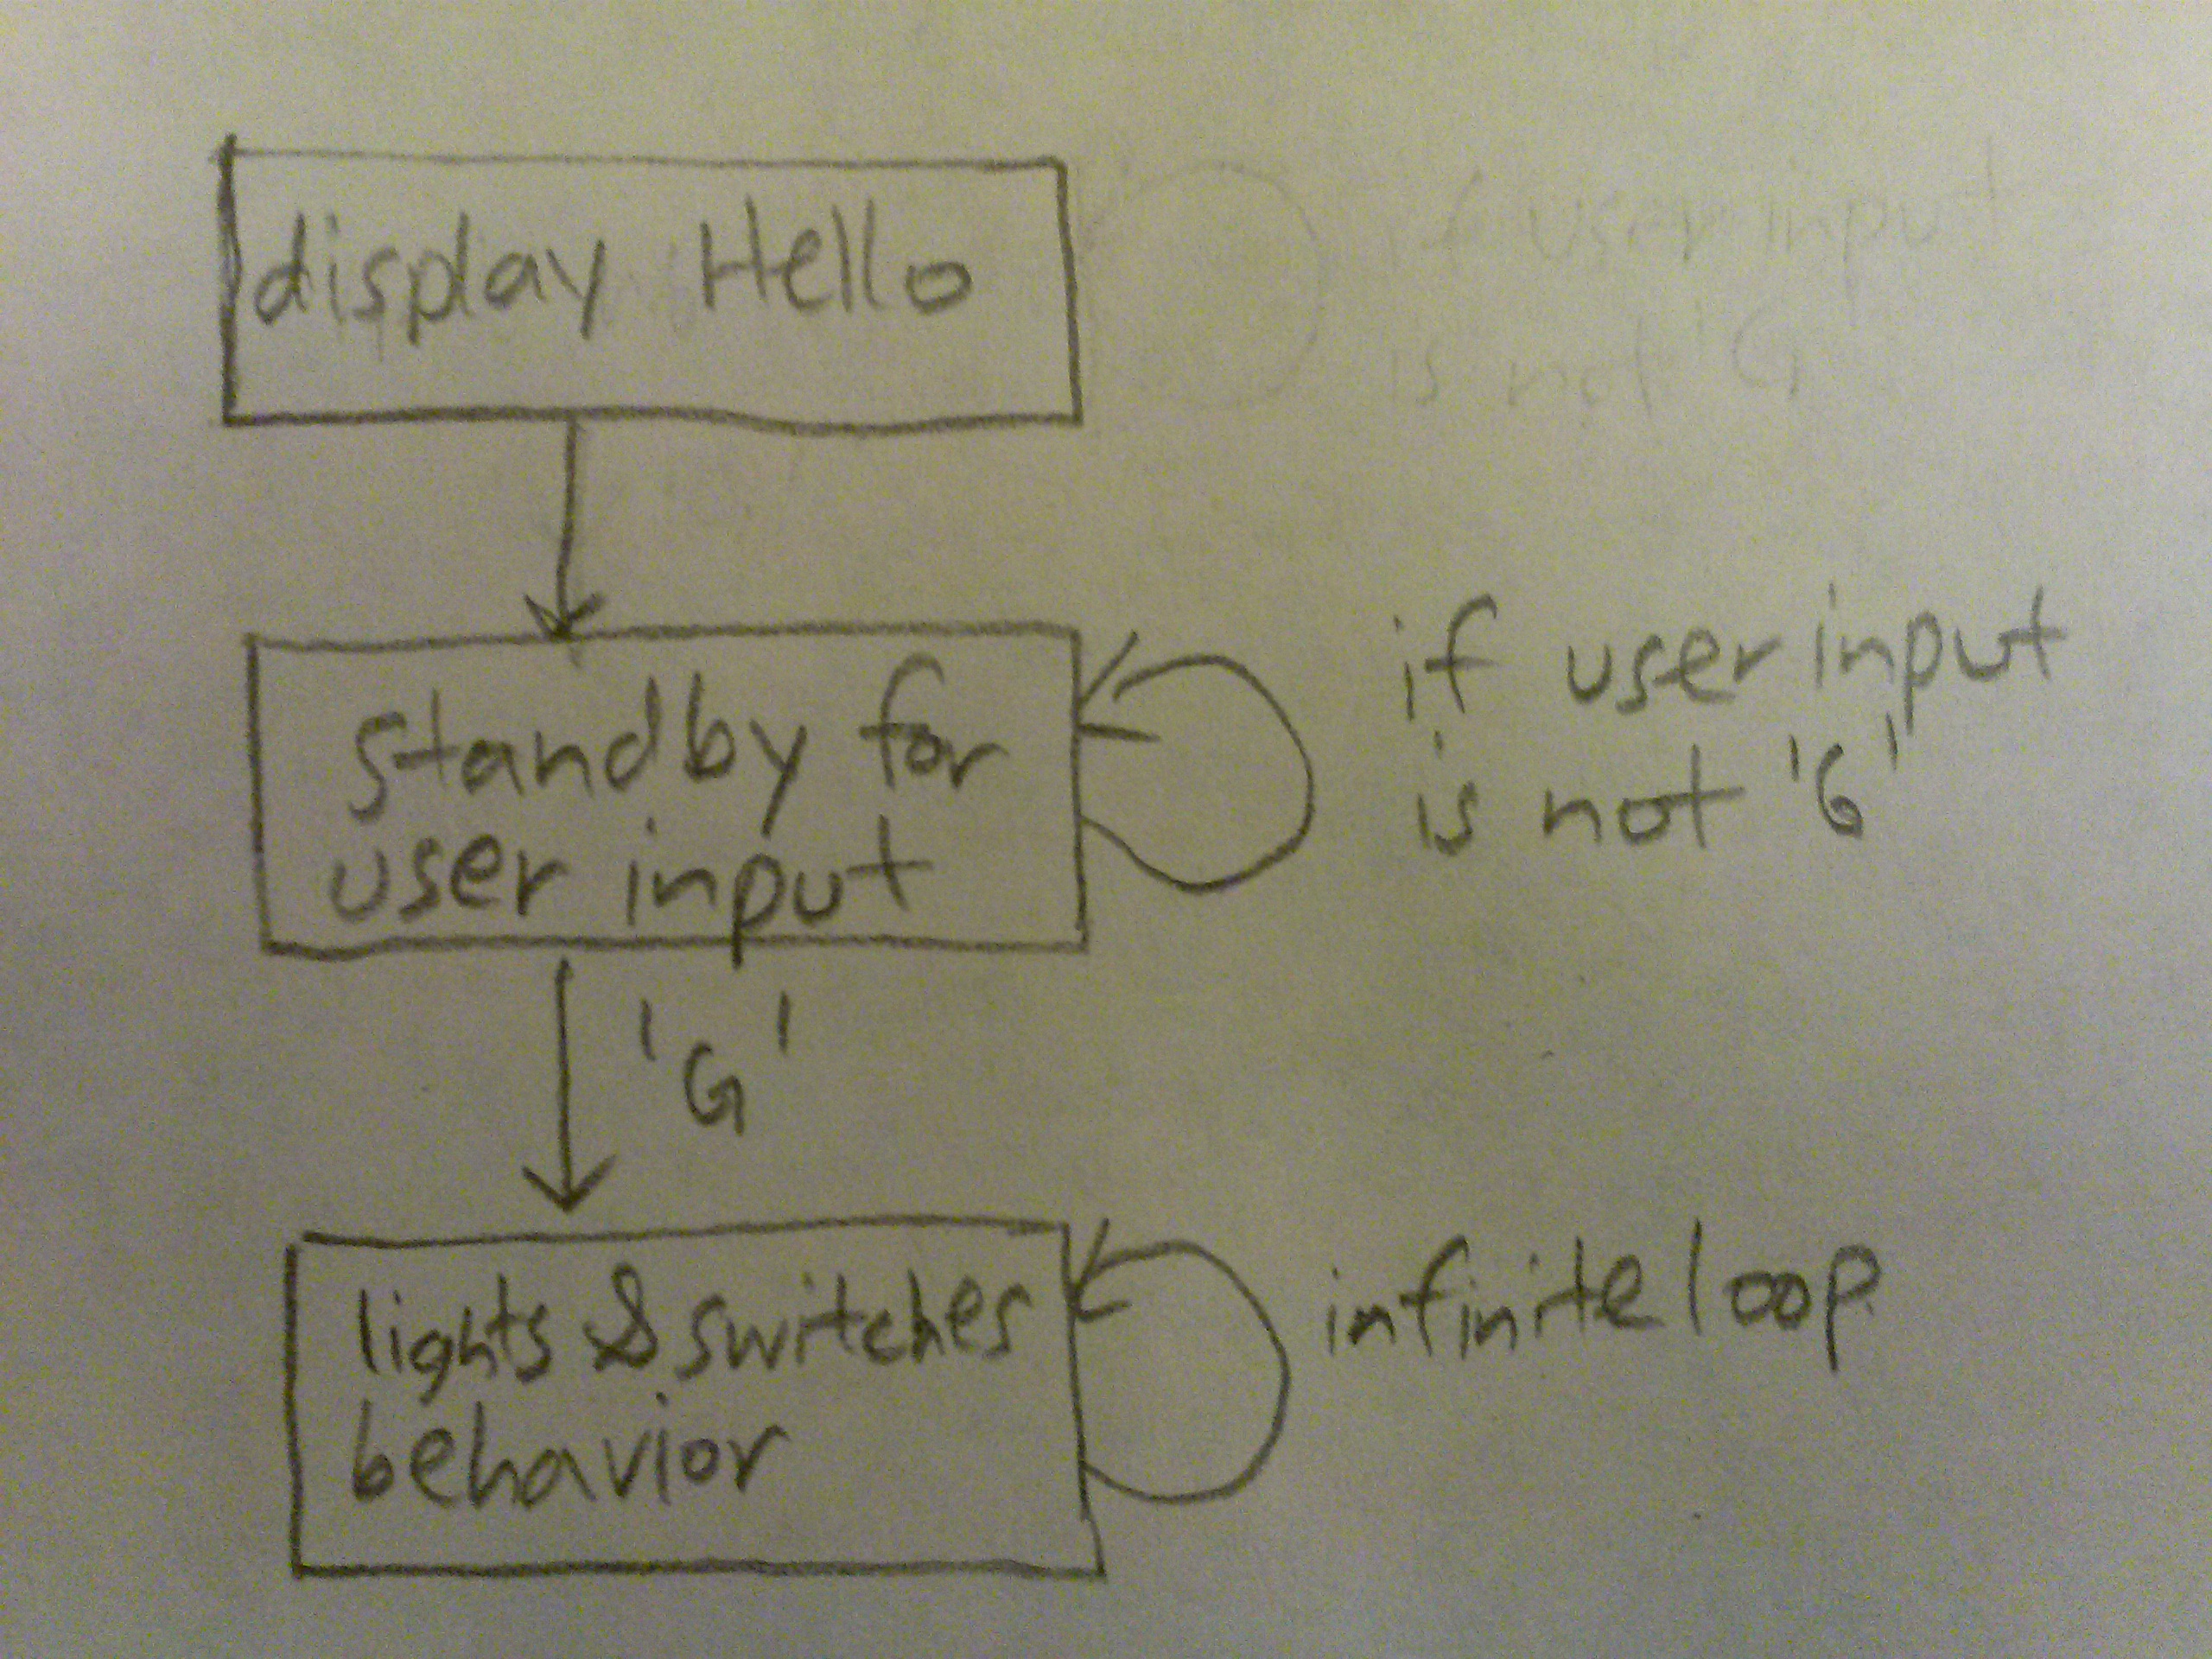 display Hello
Standby for
user input
if user input
is not 'G'
'G'
lights & switches
behavior
infinite loop